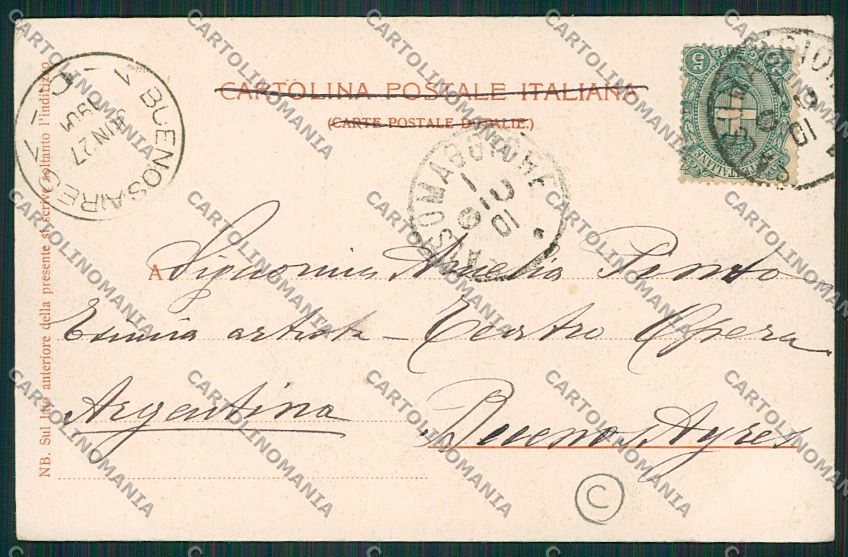 CARTOLINA POSTALE ITALIANA
(CARTE POSTALE D'ITALIE.)
NB. Sul lato anteriore della presente si scrive soltanto l'indirizzo
BUENOS AIRES
JUN 27
SALSOMAGGIORE
01
5
5
A Signorina Amelia Pinto
Esimia artista – Teatro Opera
Argentina
Buenos Ayres
C
CARTOLINOMANIA